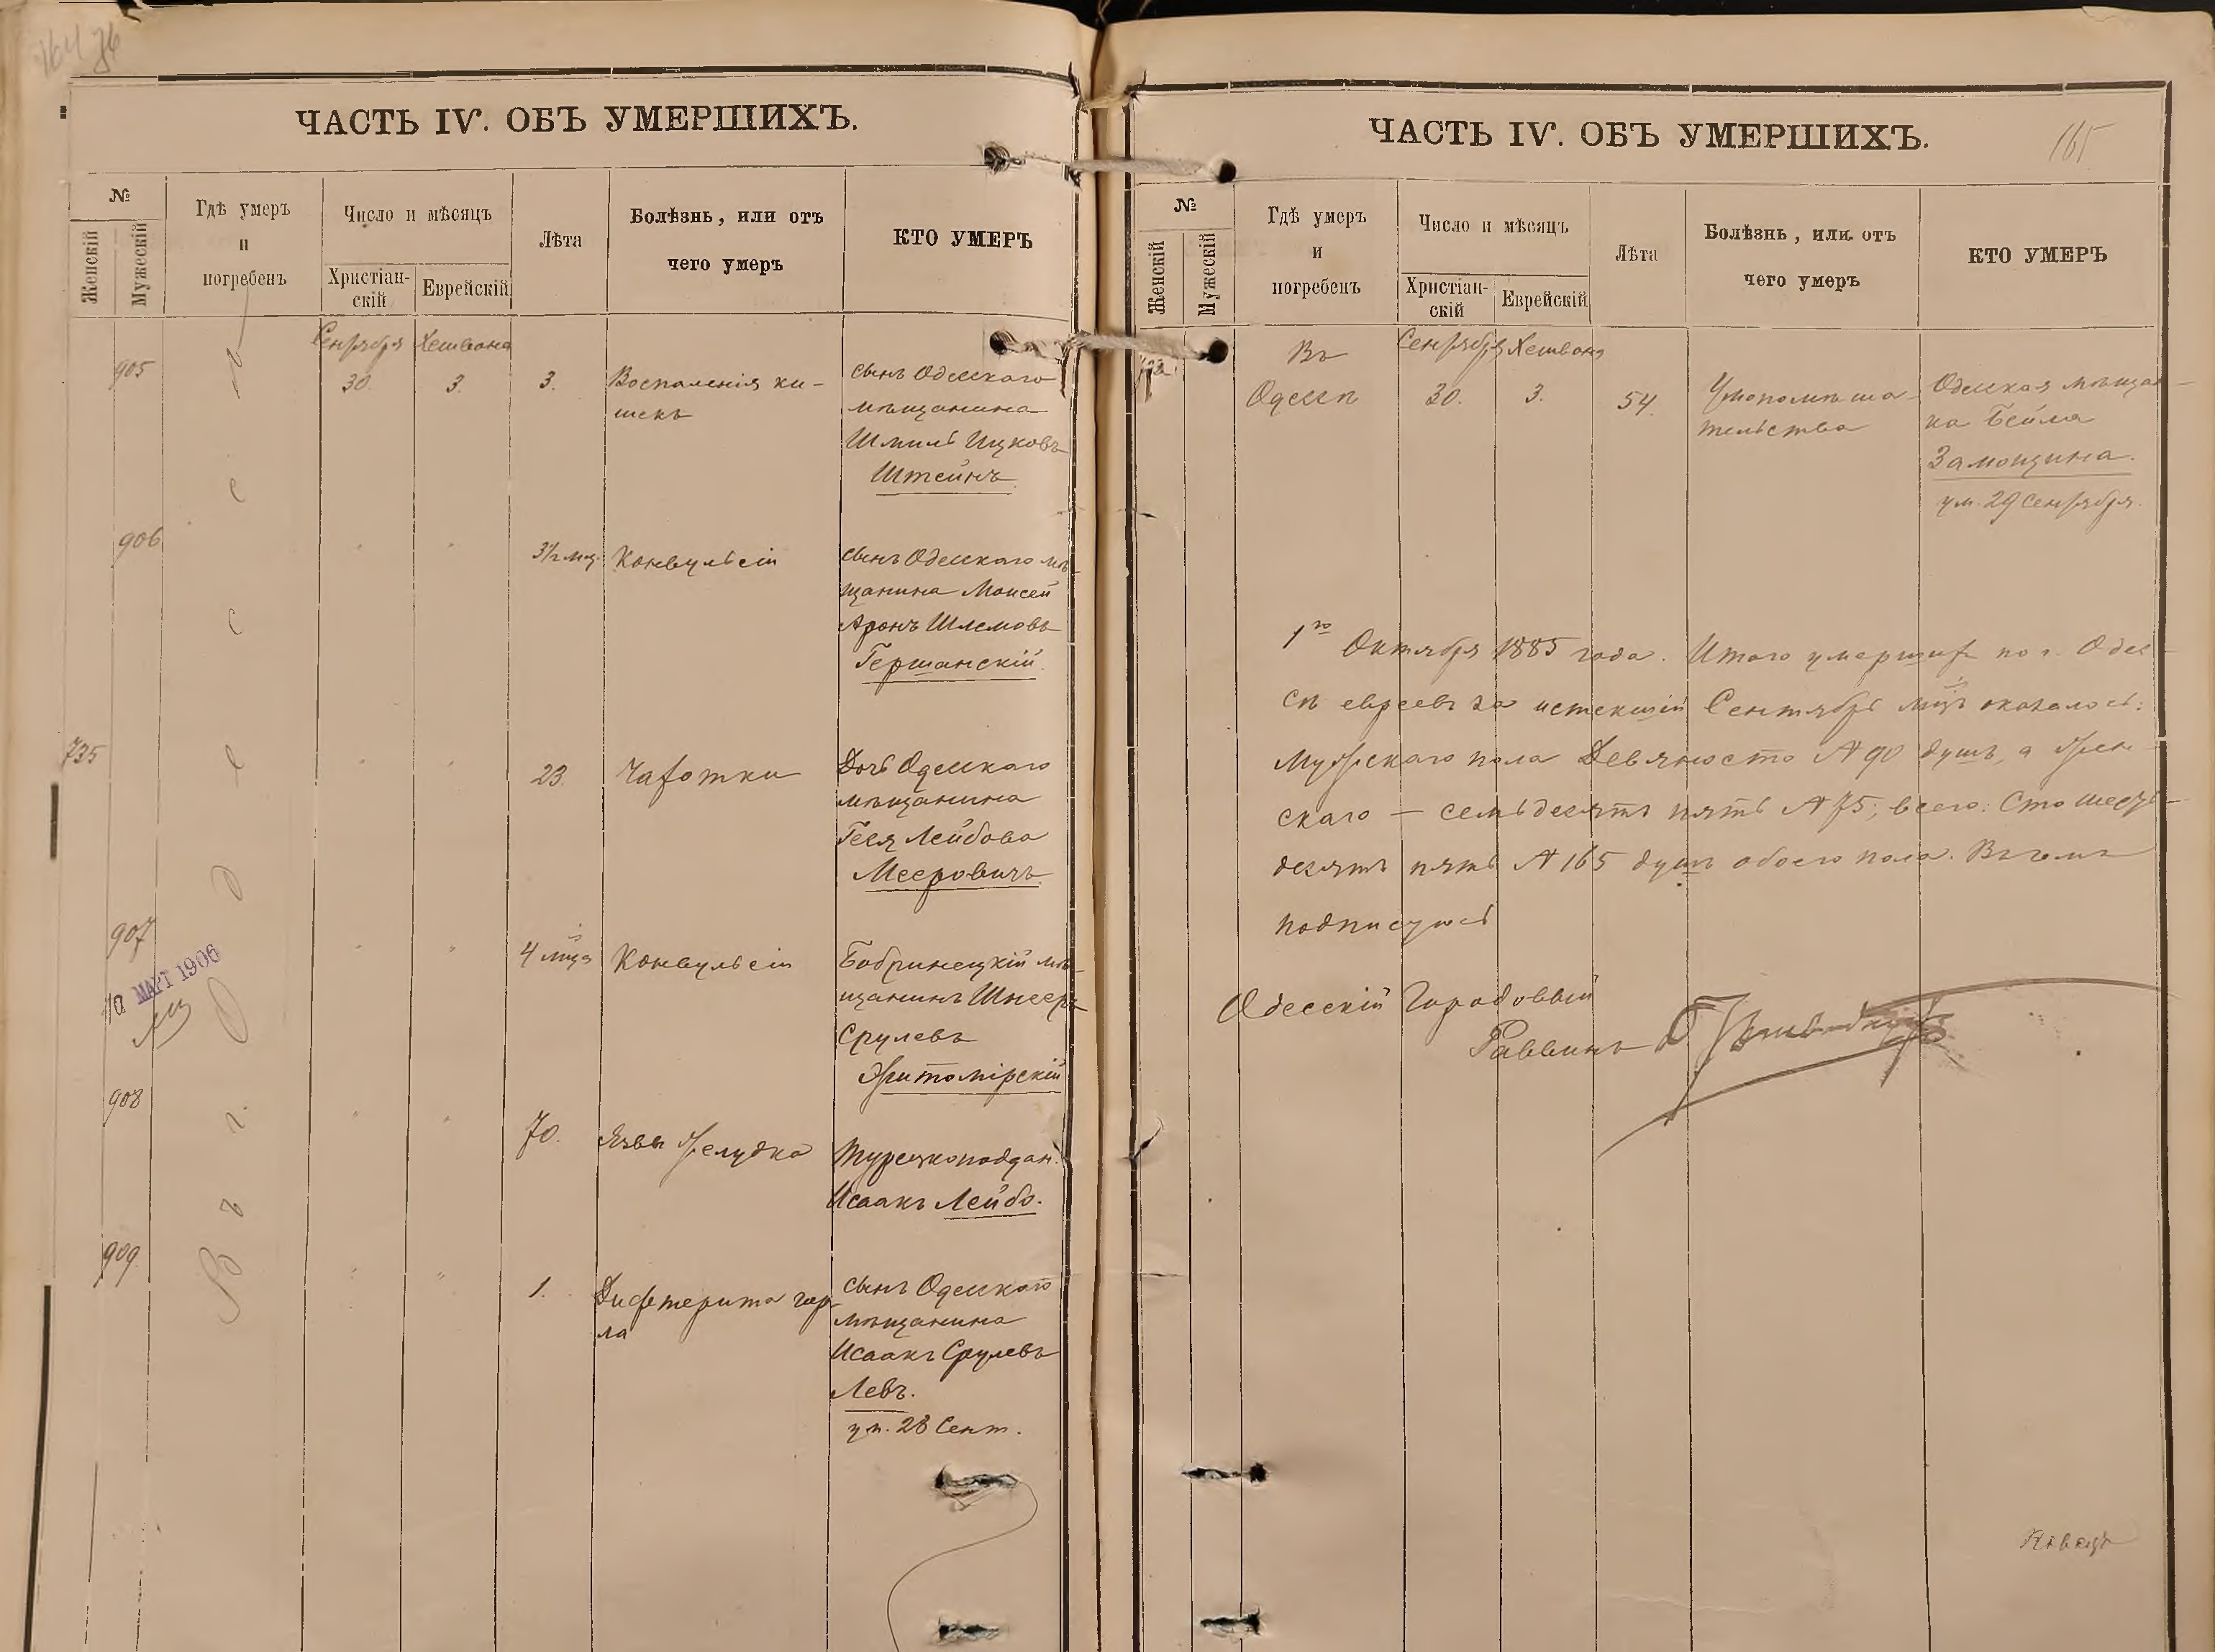 ЧАСТЬ IV. ОБЪ УМЕРШИХЪ.
№
Женскій
Мужескій
Гдѣ умеръ
и
погребенъ
Число и мѣсяцъ
Христіан-
скій
Еврейскій
Лѣта
Болѣзнь, или отъ
чего умеръ
КТО УМЕРЪ
Въ г. Одессѣ
Сентября Хешвона
905
30.
3.
3.
Воспаленія ки-
шекъ
сынъ Одесскаго
мѣщанина
Шмиль Ицковъ
Штейнъ
906
"
"
3½ мц.
Конвульсіи
сынъ Одесскаго мѣ-
щанина Моисей
Аронъ Шлемовъ
Гершанскій.
735
"
"
23.
Чахотки
Дочь Одесскаго
мѣщанина
Геся Лейбова
Мееровичъ.
907
"
"
4 мца
Конвульсіи
Бобринецкій мѣ-
щанинъ Шнееръ
Срулевъ
Житомірскій
МАРТ 1906
908
"
"
70.
Язвы желудка
Турецкоподдан.
Исаакъ Лейбо.
909.
"
"
1.
Дифтерита гор-
ла
сынъ Одесскаго
мѣщанина
Исаакъ Срулевъ
Левъ.
ум. 28 Сент.
ЧАСТЬ IV. ОБЪ УМЕРШИХЪ.
165
№
Женскій
Мужескій
Гдѣ умеръ
и
погребенъ
Число и мѣсяцъ
Христіан-
скій
Еврейскій
Лѣта
Болѣзнь, или отъ
чего умеръ
КТО УМЕРЪ
Въ
Одессѣ
Сентября Хешвона
30.
3.
54.
Умопомѣша-
тельства
Одесская мѣщан-
ка Бейла
Замощина.
ум. 29 Сентября.
1го Октября 1885 года. Итого умершихъ по г. Одес-
сѣ евреевъ за истекшій Сентябрь мцъ оказалось:
Мужескаго пола Девяносто № 90 душъ, а жен-
скаго — семьдесятъ пять № 75; всего: Сто шесть-
десятъ пять № 165 душъ обоего пола. Въ чемъ
подписуюсь
Одесскій Городовый
Раввинъ